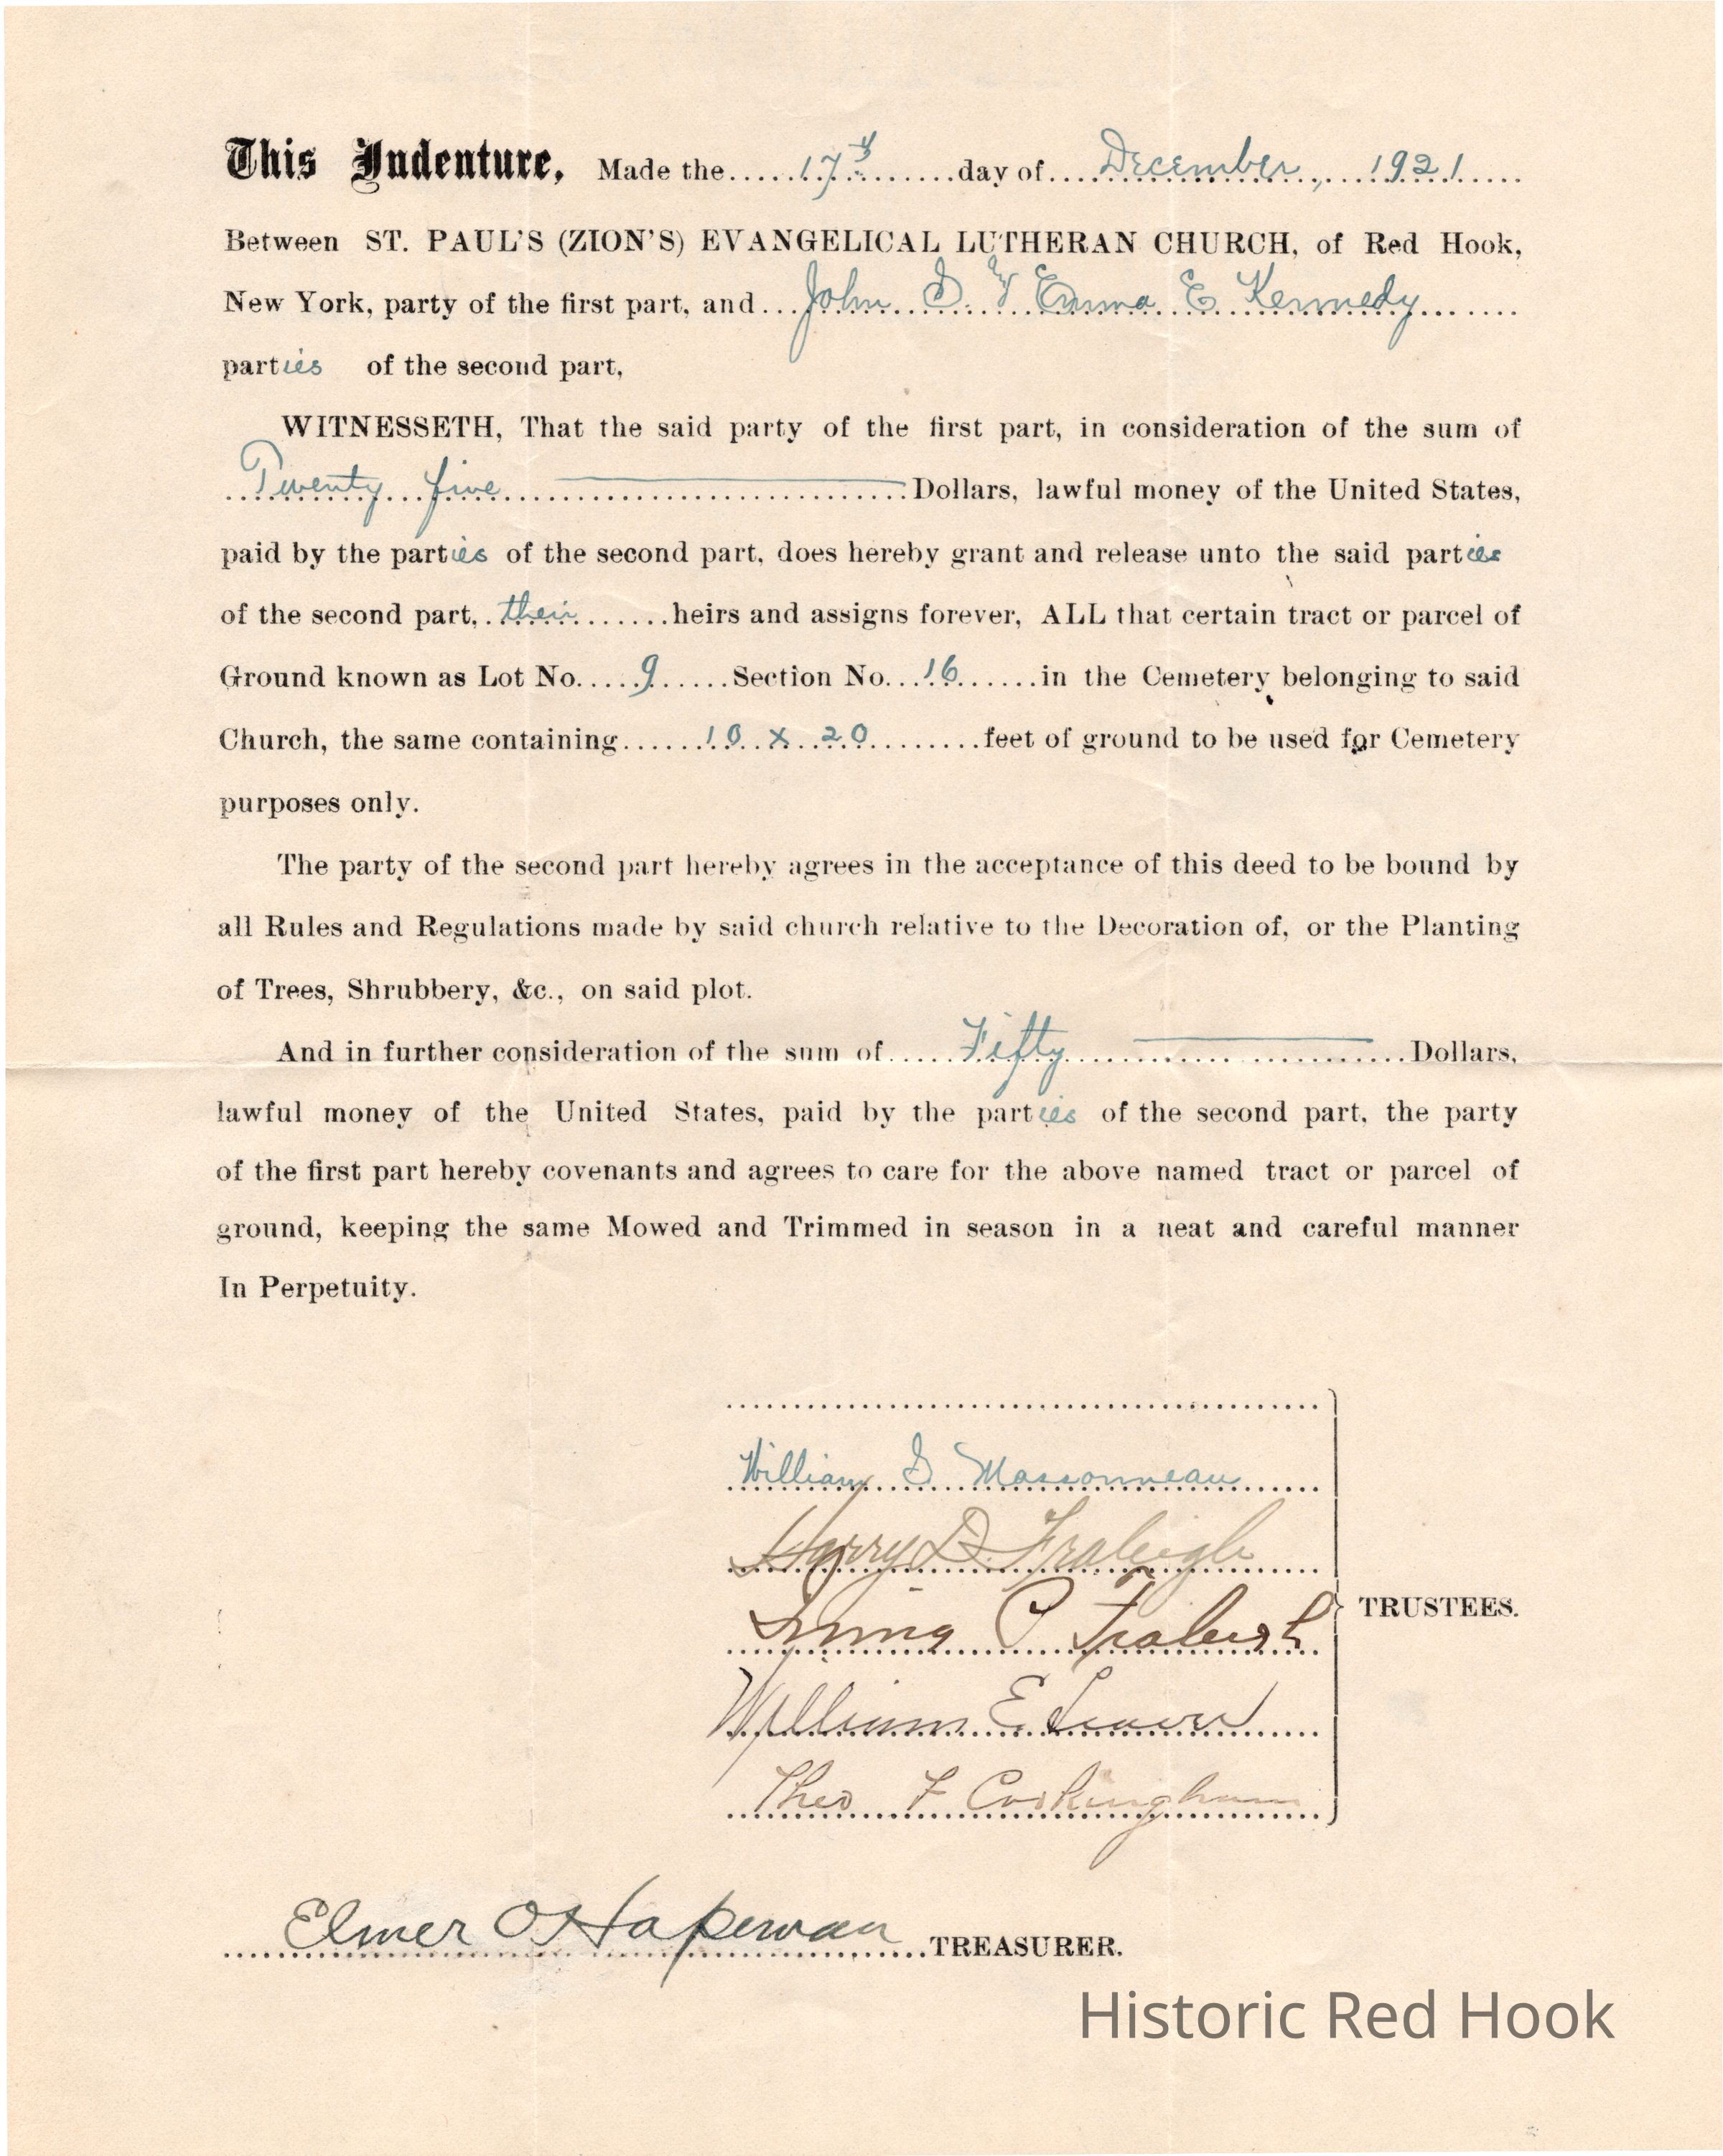 This Indenture, Made the 17th day of December, 1921
Between ST. PAUL'S (ZION'S) EVANGELICAL LUTHERAN CHURCH, of Red Hook,
New York, party of the first part, and John S. & Emma E Kennedy
parties of the second part,
WITNESSETH, That the said party of the first part, in consideration of the sum of
Twenty five Dollars, lawful money of the United States,
paid by the parties of the second part, does hereby grant and release unto the said parties
of the second part, their heirs and assigns forever, ALL that certain tract or parcel of
Ground known as Lot No. 9 Section No. 16 in the Cemetery belonging to said
Church, the same containing 10 x 20 feet of ground to be used for Cemetery
purposes only.
The party of the second part hereby agrees in the acceptance of this deed to be bound by
all Rules and Regulations made by said church relative to the Decoration of, or the Planting
of Trees, Shrubbery, &c., on said plot.
And in further consideration of the sum of Fifty Dollars,
lawful money of the United States, paid by the parties of the second part, the party
of the first part hereby covenants and agrees to care for the above named tract or parcel of
ground, keeping the same Mowed and Trimmed in season in a neat and careful manner
In Perpetuity.
William S Massonneau
Harry D. Fraleigh
Irving P Fraleigh
TRUSTEES.
William E.
Theo F Cookingham
Elmer O Hapeman TREASURER.
Historic Red Hook